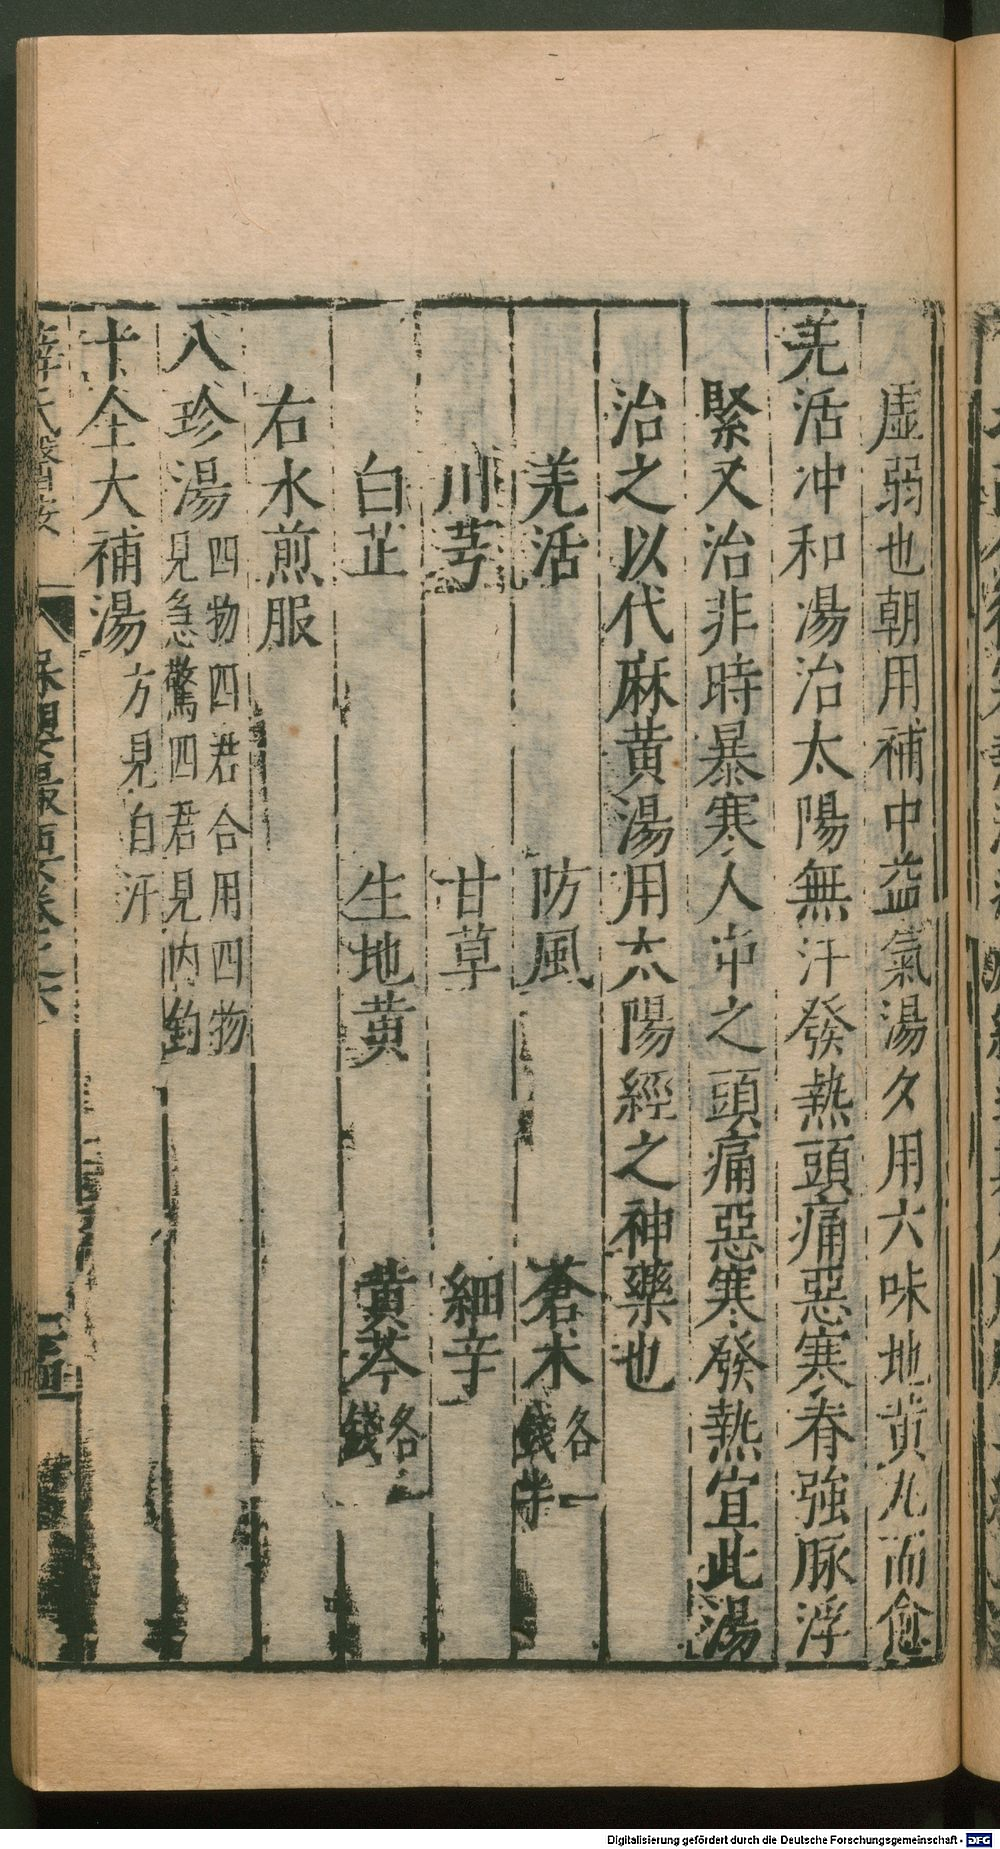 虛弱也朝用補中益氣湯夕用六味地黃丸而愈
羌活冲和湯治太陽無汗發熱頭痛惡寒脊強脉浮
緊又治非時暴寒人中之頭痛惡寒發熱宜此湯
治之以代麻黃湯用太陽經之神藥也
羌活 防風 蒼术各一錢半
川芎 甘草 細辛
白芷 生地黃 黃芩各二錢
右水煎服
八珍湯四物四君合用四物見急驚四君見內釣
十全大補湯方見自汗
薛氏醫按 保嬰撮要卷之六
Digitalisierung gefördert durch die Deutsche Forschungsgemeinschaft - DFG